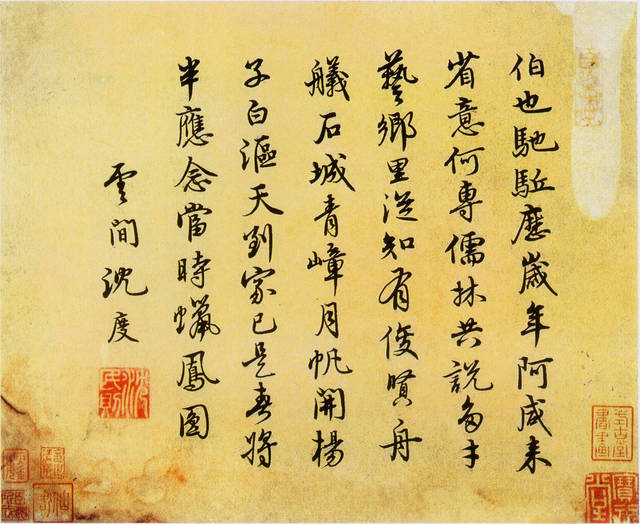 伯也馳駈歷歲年阿咸来
省意何專儒林共説多才
藝鄉里從知有俊賢舟
艤石城青嶂月帆開楊
子白漚天到家已是春將
半應念當時蠟鳳圓
雲間沈度
沈民則